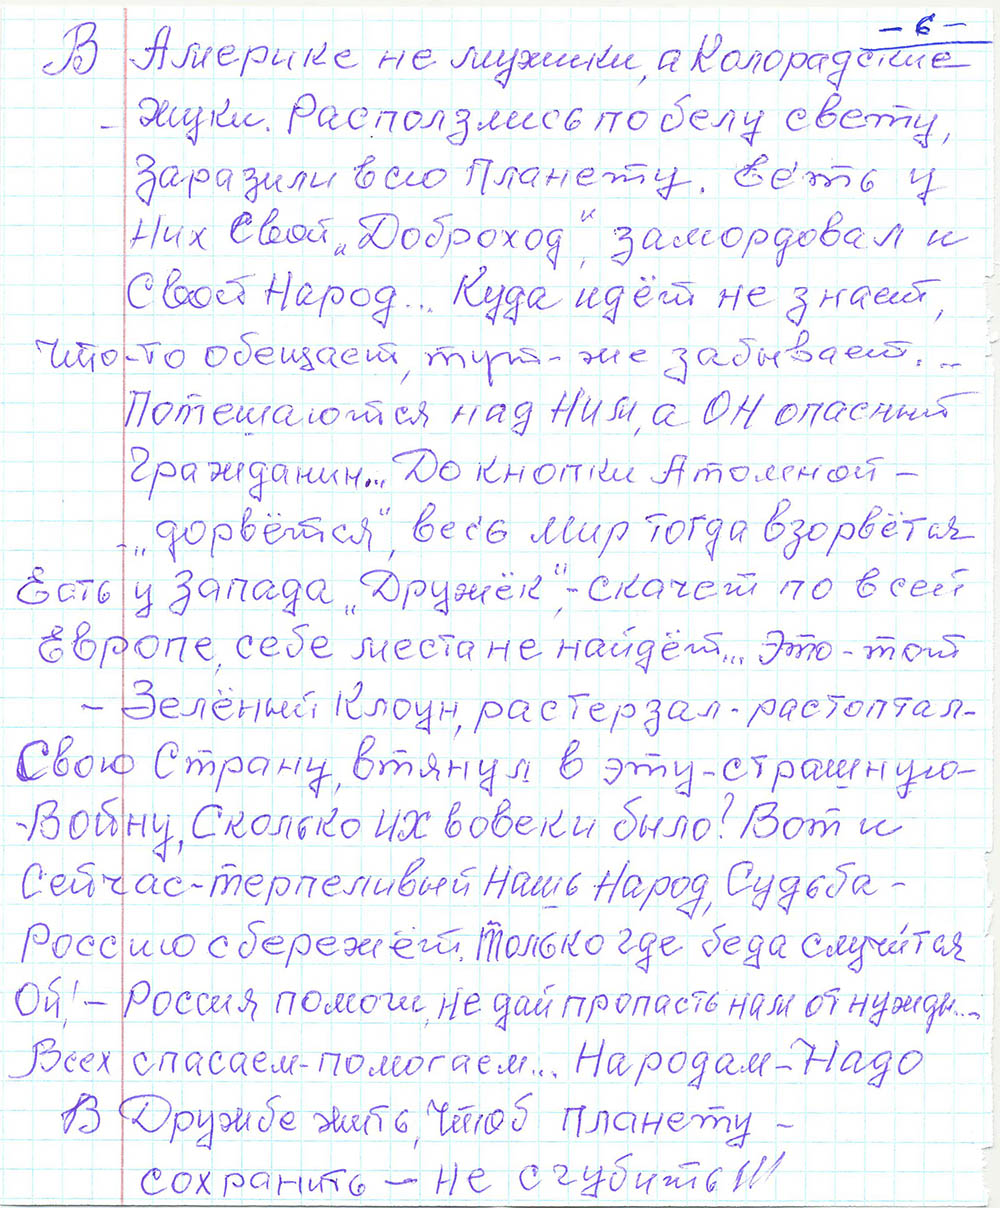 - 6 -
В Америке не мужики, а Колорадские
- жуки. Расползлись по белу свету,
Заразили всю Планету. Есть у
Них Свой „Доброход", замордовал и
Свой Народ... Куда идёт не знает,
Что-то обещает, тут-же забывает...
Потешаются над Ним, а ОН опасный
Гражданин... До кнопки Атомной -
- „дорвётся", весь Мир тогда взорвётся
Есть у Запада „Дружёк", - скачет по всей
Европе, себе места не найдёт... Это-тот
- Зелёный Клоун, растерзал-растоптал-
Свою Страну, втянул в эту-страшную-
-Войну, Сколько их вовеки было? Вот и
Сейчас-терпеливый Нашь Народ, Судьба -
Россию сбережёт. Только где беда случится
Ой! - Россия помоги, не дай пропасть нам от нужды...
Всех спасаем-помогаем... Народам-Надо
В Дружбе жить, Чтоб Планету -
сохранить - Не сгубить!!!